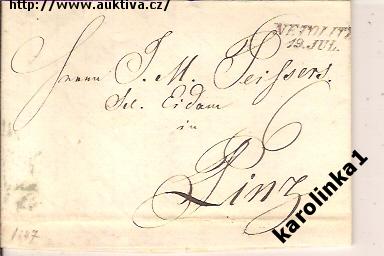 http://www.auktiva.cz/
NETOLITZ
19. JUL.
Herrn J. M. Peissers
Sel. Eidam
in
Linz
karolinka1